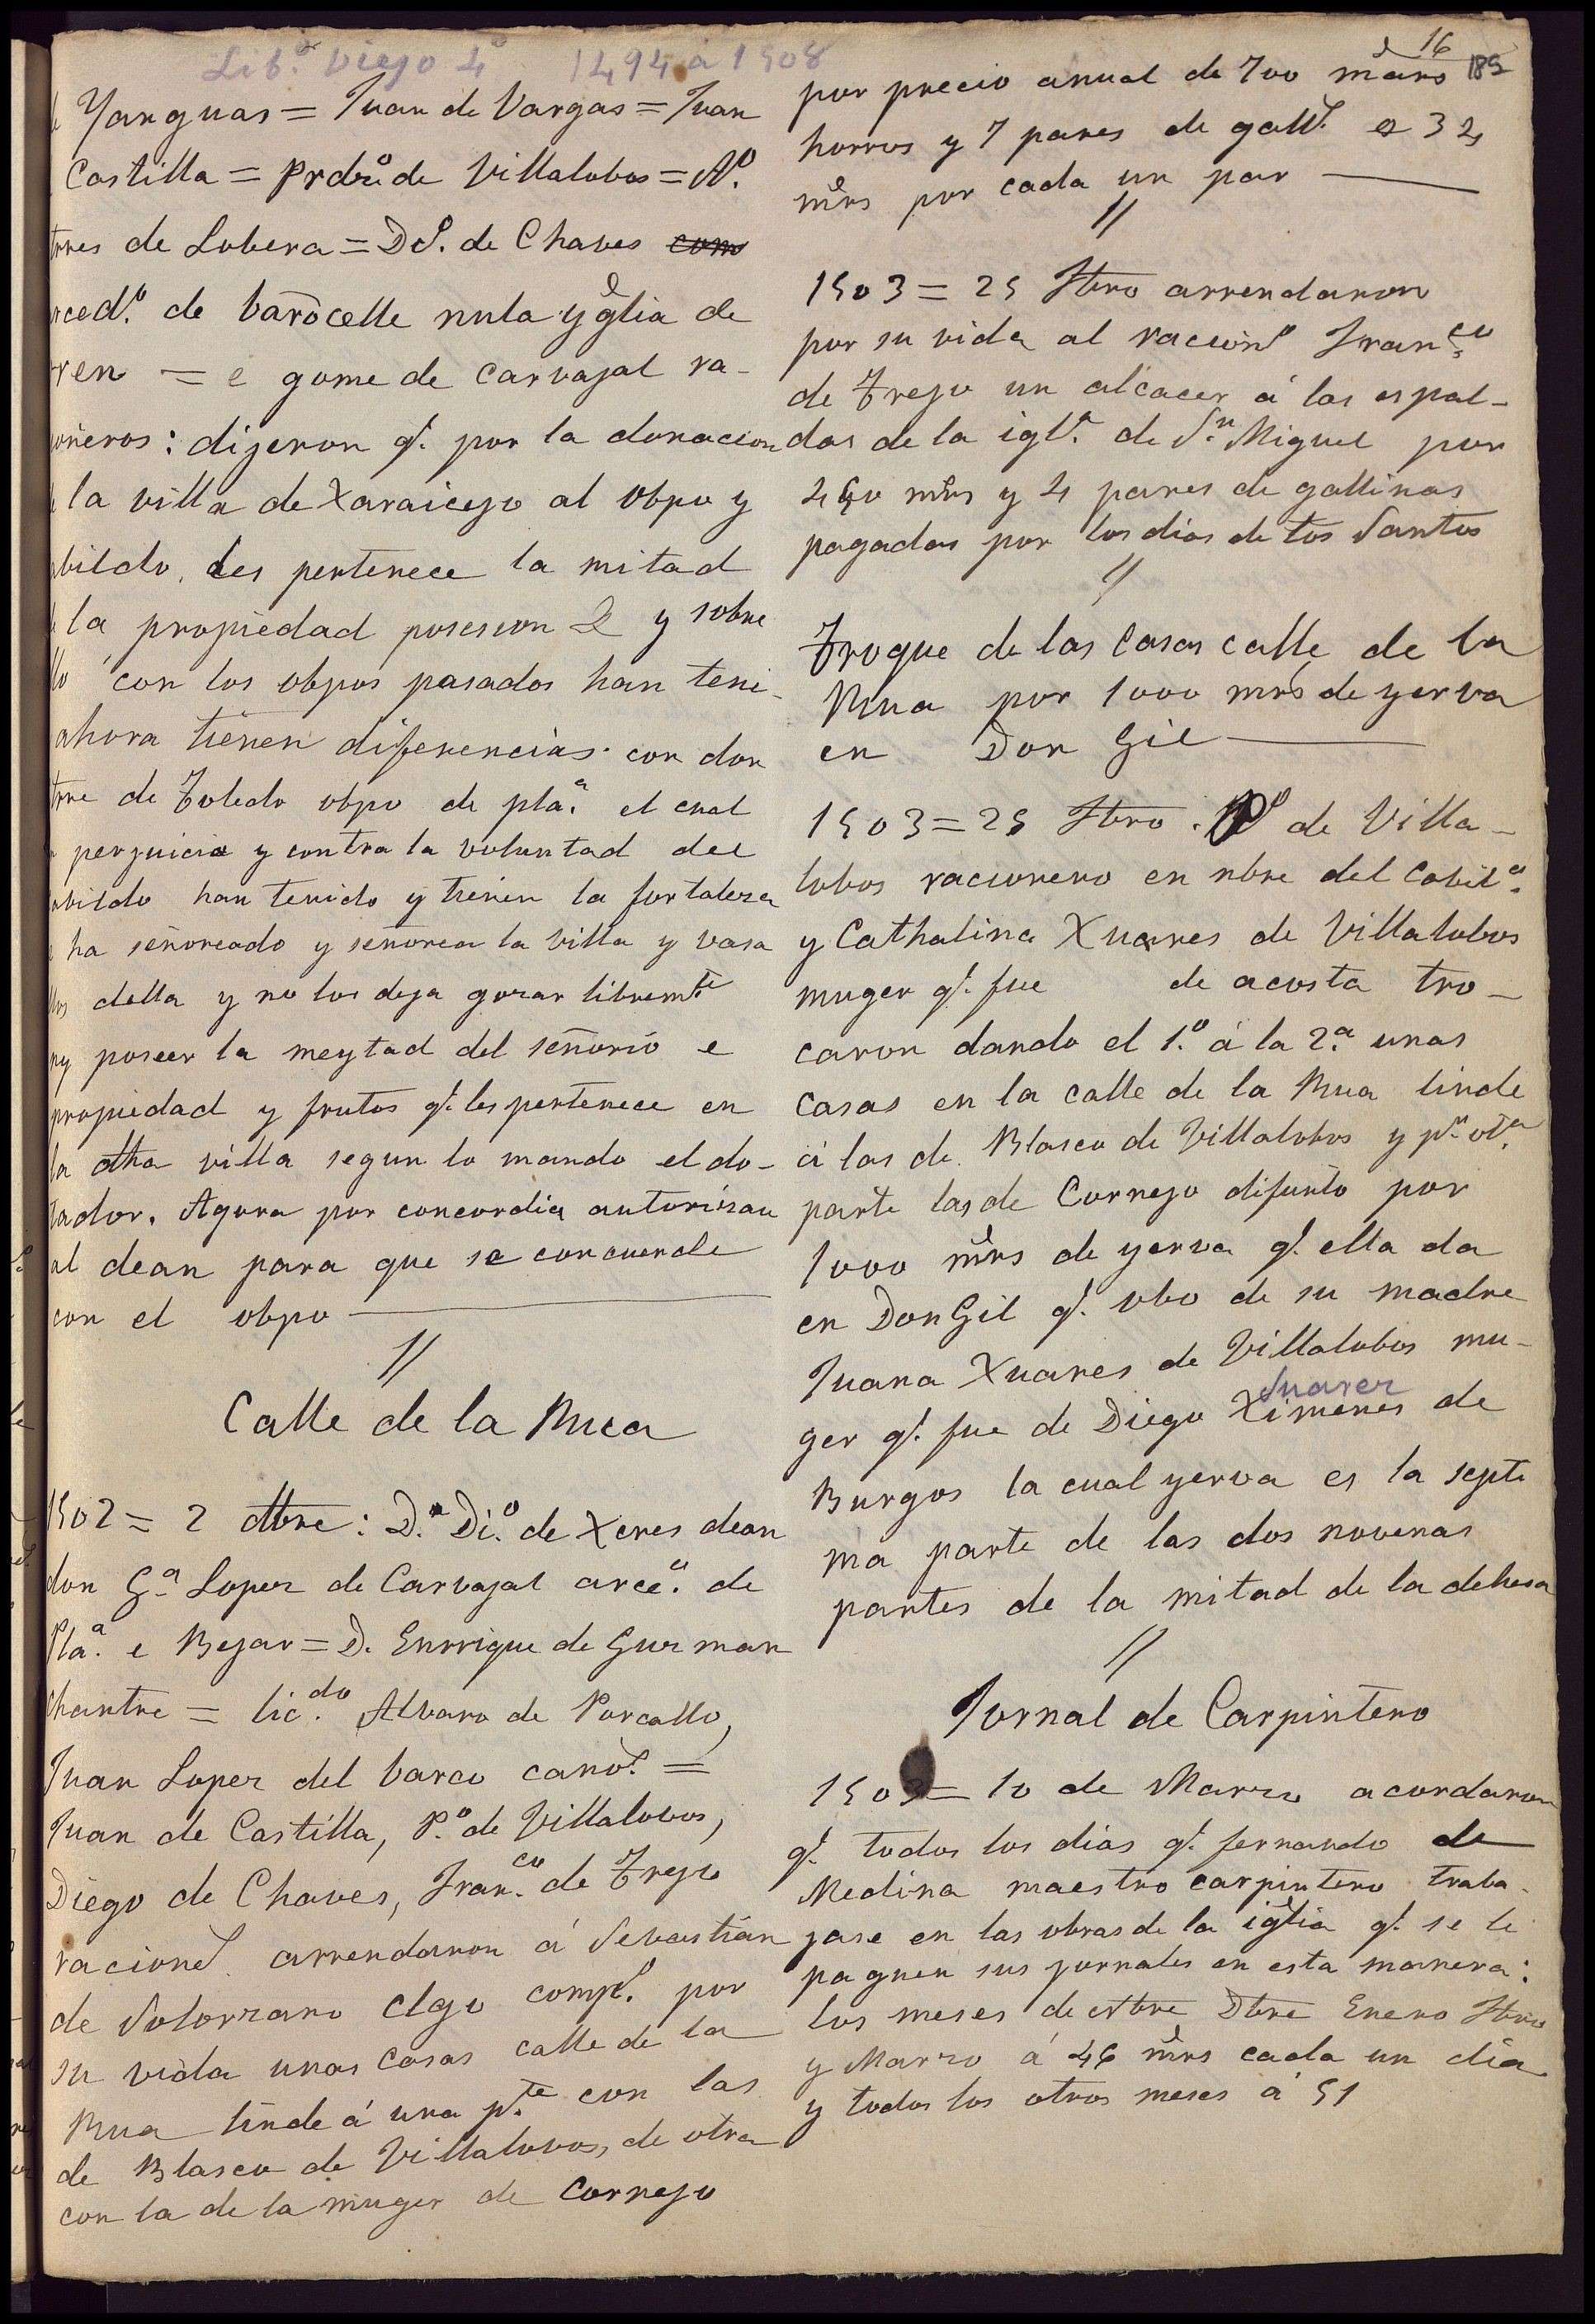 Lib.º Viejo 4º 1494 a 1508
16
185
Yanguas = Juan de Vargas = Juan
Castilla = de Villalobos = Aº.
tres de Lobera = Dº. de Chaves com
rced.º de barocelle nula yglia de
ren = e gome de Carvajal ra-
oneros: dijeron q.e por la donacion
la villa de Xaraicejo al obpo y
bildo, les pertenece la mitad
la propiedad posesion & y sobre
llo con los obpos pasados han teni-
ahora tienen diferencias con don
trre de Toledo obpo de pla.ª el cual
perjuicio y contra la voluntad del
bildo han tenido y tienen la fortaleza
ha señoreado y señorea la villa y vasa
llos della y no los deja gozar librem.te
ny poseer la meytad del señorio e
propiedad y frutos q.e les pertenece en
la dha villa segun lo mando el do-
tador. Agora por concordia autorizan
al dean para que se concuerde
con el obpo
//
Calle de la Rua
1502 = 2 dbre: D.ⁿ Di.º de Xeres dean
don G.ª Lopez de Carvajal arce.º de
Pla.ª e Bejar = D. Enrrique de Guzman
chantre = lic.do Alvaro de Porcallo,
Juan Lopez del barco cano.º =
Juan de Castilla, P.º de Villalobos,
Diego de Chaves, Fran.co de Trejo
racione.s arrendaron á Sebastian
de Solorzano clgo comp.º por
su vida unas casas calle de la
Rua linde á una p.te con las
de Blasco de Villalobos, de otra
con la de la muger de Cornejo
por precio anual de 700 mars
horros y 7 pares de gall.s a 34
mrs por cada un par
//
1503 = 25 Fbro arrendaron
por su vida al racion.º Fran.co
de Trejo un alcacer á las espal-
das de la igl.ª de S.n Miguel por
450 mrs y 4 pares de gallinas
pagadas por los dias de tos Santos
//
Troque de las Casas calle de la
Rua por 1000 mrs de yerva
en Don Gil
1503 = 25 Fbro. Pº de Villa-
lobos racionero en nbre del Cabil.º
y Cathalina Xuares de Villalobos
muger q.e fue de acosta tro-
caron dando el 1.º á la 2.ª unas
casas en la calle de la Rua linde
á las de Blasco de Villalobos y p.r ot.ª
parte las de Cornejo difunto por
1000 mrs de yerva q.e ella da
en Don Gil q.e obo de su madre
Juana Xuares de Villalobos mu-
Suarez
ger q.e fue de Diego Ximenes de
Burgos la cual yerva es la septi
ma parte de las dos novenas
partes de la mitad de la dehesa
//
Jornal de Carpintero
1503 = 10 de Marzo acordaron
q.e todos los dias q.e fernando de
Medina maestro carpintero traba-
jase en las obras de la iglia q.e se le
paguen sus jornales en esta manera:
los meses de Nbre Dbre Enero Fbro
y Marzo á 46 mrs cada un dia
y todos los otros meses á 51